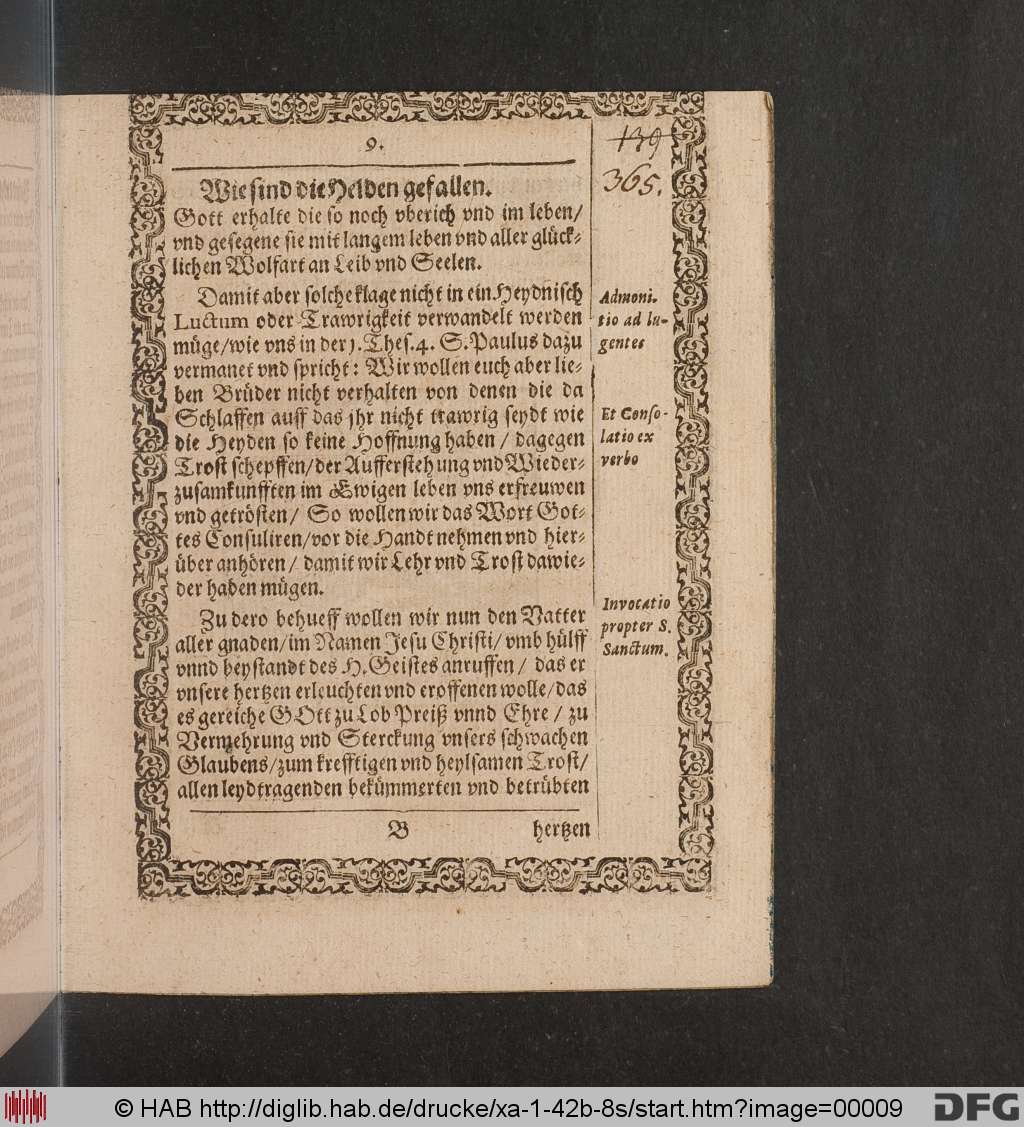 9.
139
365.
Wie sind die Helden gefallen.
Gott erhalte die so noch vberich vnd im leben/
vnd gesegene sie mit langem leben vnd aller glück⸗
lichen Wolfart an Leib vnd Seelen.
Damit aber solche klage nicht in ein Heydnisch
Luctum oder Trawrigkeit verwandelt werden
müge/wie vns in der 1. Thes. 4. S. Paulus dazu
vermanet vnd spricht: Wir wollen euch aber lie⸗
ben Brüder nicht verhalten von denen die da
Schlaffen auff das jhr nicht trawrig seydt wie
die Heyden so keine Hoffnung haben / dagegen
Trost schepffen/der Aufferstehung vnd Wieder⸗
zusamkunfften im Ewigen leben vns erfreuwen
vnd getrösten/ So wollen wir das Wort Got⸗
tes Consuliren/vor die Handt nehmen vnd hier⸗
über anhören/ damit wir Lehr vnd Trost dawie⸗
der haben mügen.
Zu dero behueff wollen wir nun den Vatter
aller gnaden/im Namen Jesu Christi/ vmb hülff
vnnd beystandt des H. Geistes anruffen / das er
vnsere hertzen erleuchten vnd eroffenen wolle/das
es gereiche GOtt zu Lob Preiß vnnd Ehre / zu
Vermehrung vnd Sterckung vnsers schwachen
Glaubens/zum krefftigen vnd heylsamen Trost/
allen leydtragenden bekümmerten vnd betrübten
B hertzen
Admoni-
tio ad lu-
gentes
Et Conso-
latio ex
verbo
Invocatio
propter S.
Sanctum.
© HAB http://diglib.hab.de/drucke/xa-1-42b-8s/start.htm?image=00009
DFG